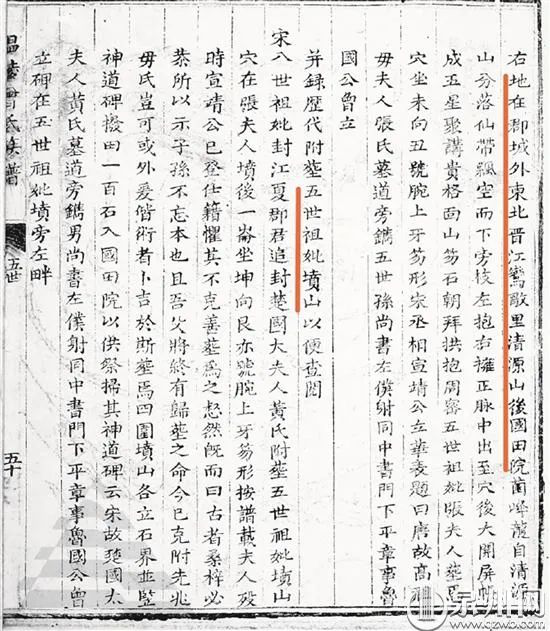 右地在郡城外東北晋江鸞歌里清源山後國田院蘭峰龍自清源
山分落仙帶飄空而下旁枝左抱右擁正脉中出至穴後大開屏帳
成五星聚講貴格面山笏石朝拜拱抱周密五世祖妣張夫人塋焉
穴坐未向丑號腕上牙笏形宋丞相宣靖公立華表題曰唐故高祖
毋夫人張氏墓道旁鐫五世孫尚書左僕射同中書門下平章事魯
國公魯立
并録歷代附塟五世祖妣墳山以便查閱
宋八世祖妣封江夏郡君追封楚國大夫人黃氏附塟五世祖妣墳山
穴在張夫人墳後一崙坐坤向艮亦號腕上牙笏形按譜載夫人歿
時宣靖公已登仕籍懼其不克善塟爲之愁然旣而曰古者桑梓必
恭所以示子孫不忘本也且吾父將終有歸塟之命今已克附先兆
毋氏豈可或外爰偕術者卜吉於斯塟焉四圍墳山各立石界並竪
神道碑撥田一百石入國田院以供祭掃其神道碑云宋故楚國太
夫人黃氏墓道旁鐫男尚書左僕射同中書門下平章事魯國公曾
立碑在五世祖妣墳旁左畔
温陵曾氏族譜
五世
五十
泉州网
www.qzwb.com